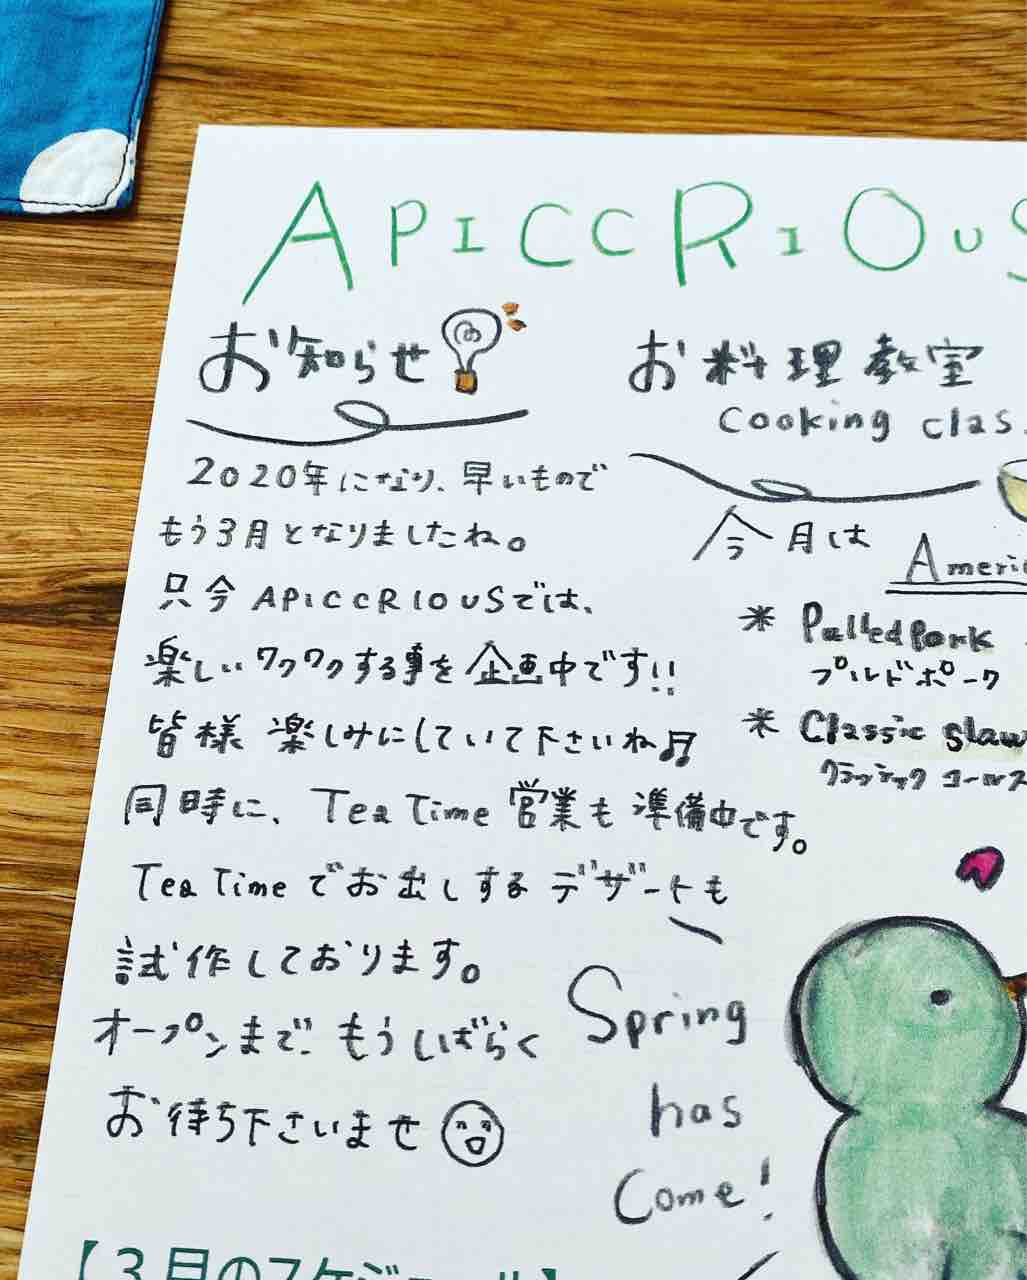 APICCRIOUS
お知らせ
2020年になり、早いもので
もう3月となりましたね。
只今 APICCRIOUSでは、
楽しいワクワクする事を企画中です!!
皆様 楽しみにしていて下さいね♬
同時に、Tea Time 営業も準備中です。
Tea Time でお出しするデザートも
試作しております。
オープンまで、もうしばらく
お待ち下さいませ
お料理教室
Cooking clas
今月は
Ameri
* Pulled Pork
プルドポーク
* Classic Slaw
クラッシック コールス
Spring
has
Come!
【3月のスケジュール】